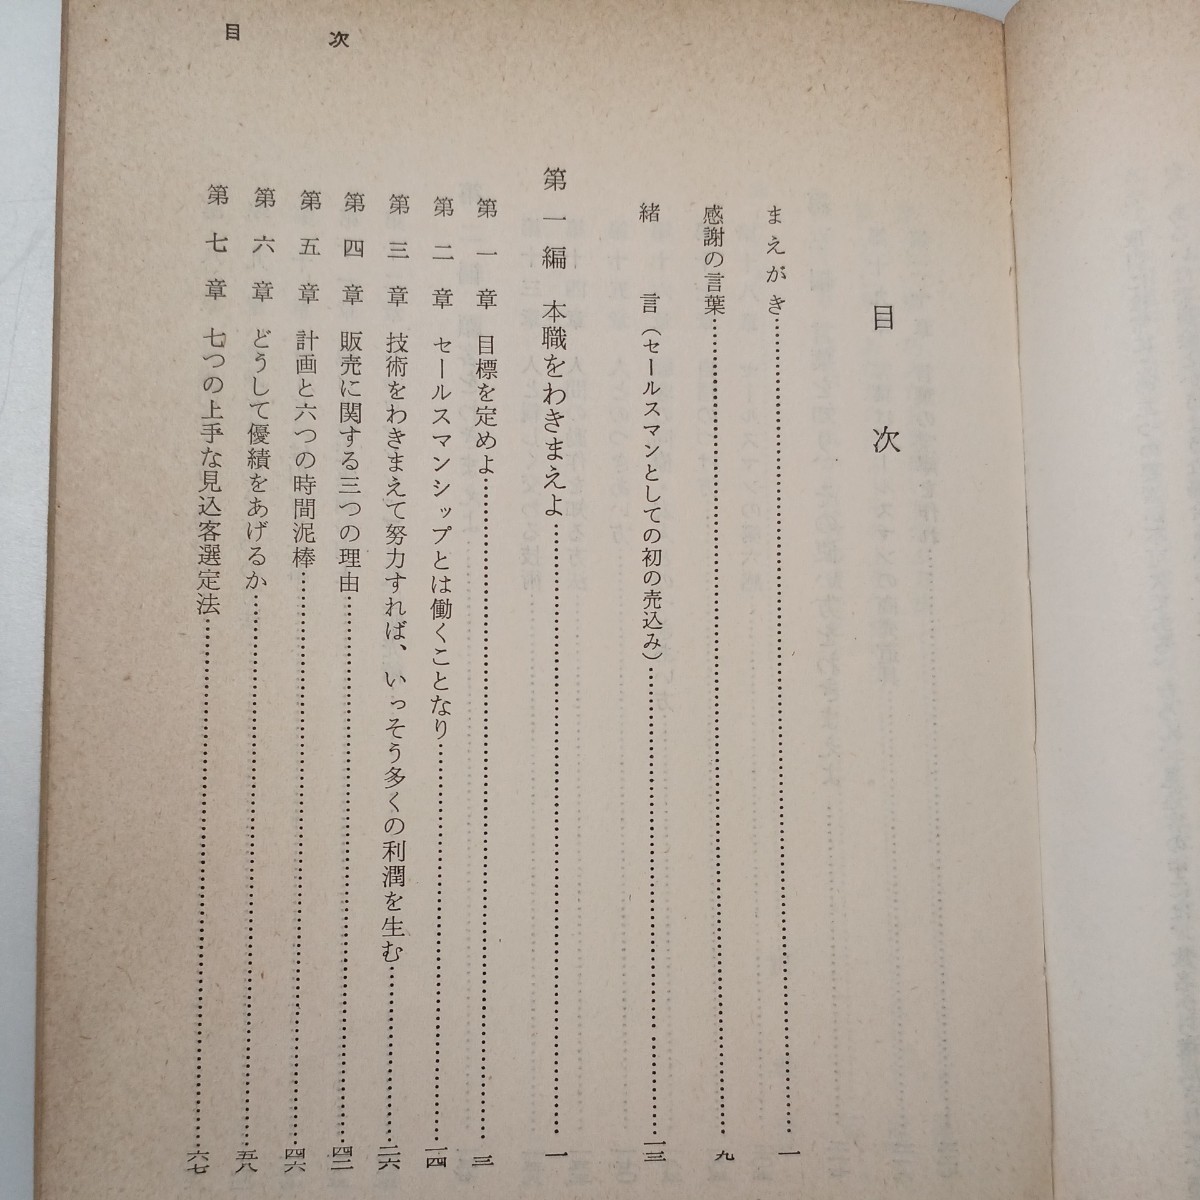 目次
目次
まえがき……一
感謝の言葉……九
緒言（セールスマンとしての初の売込み）……一三
第一編 本職をわきまえよ……一
第一章 目標を定めよ……三
第二章 セールスマンシップとは働くことなり……一四
第三章 技術をわきまえて努力すれば、いっそう多くの利潤を生む……二六
第四章 販売に関する三つの理由……四二
第五章 計画と六つの時間泥棒……四六
第六章 どうして優績をあげるか……五八
第七章 七つの上手な見込客選定法……六七